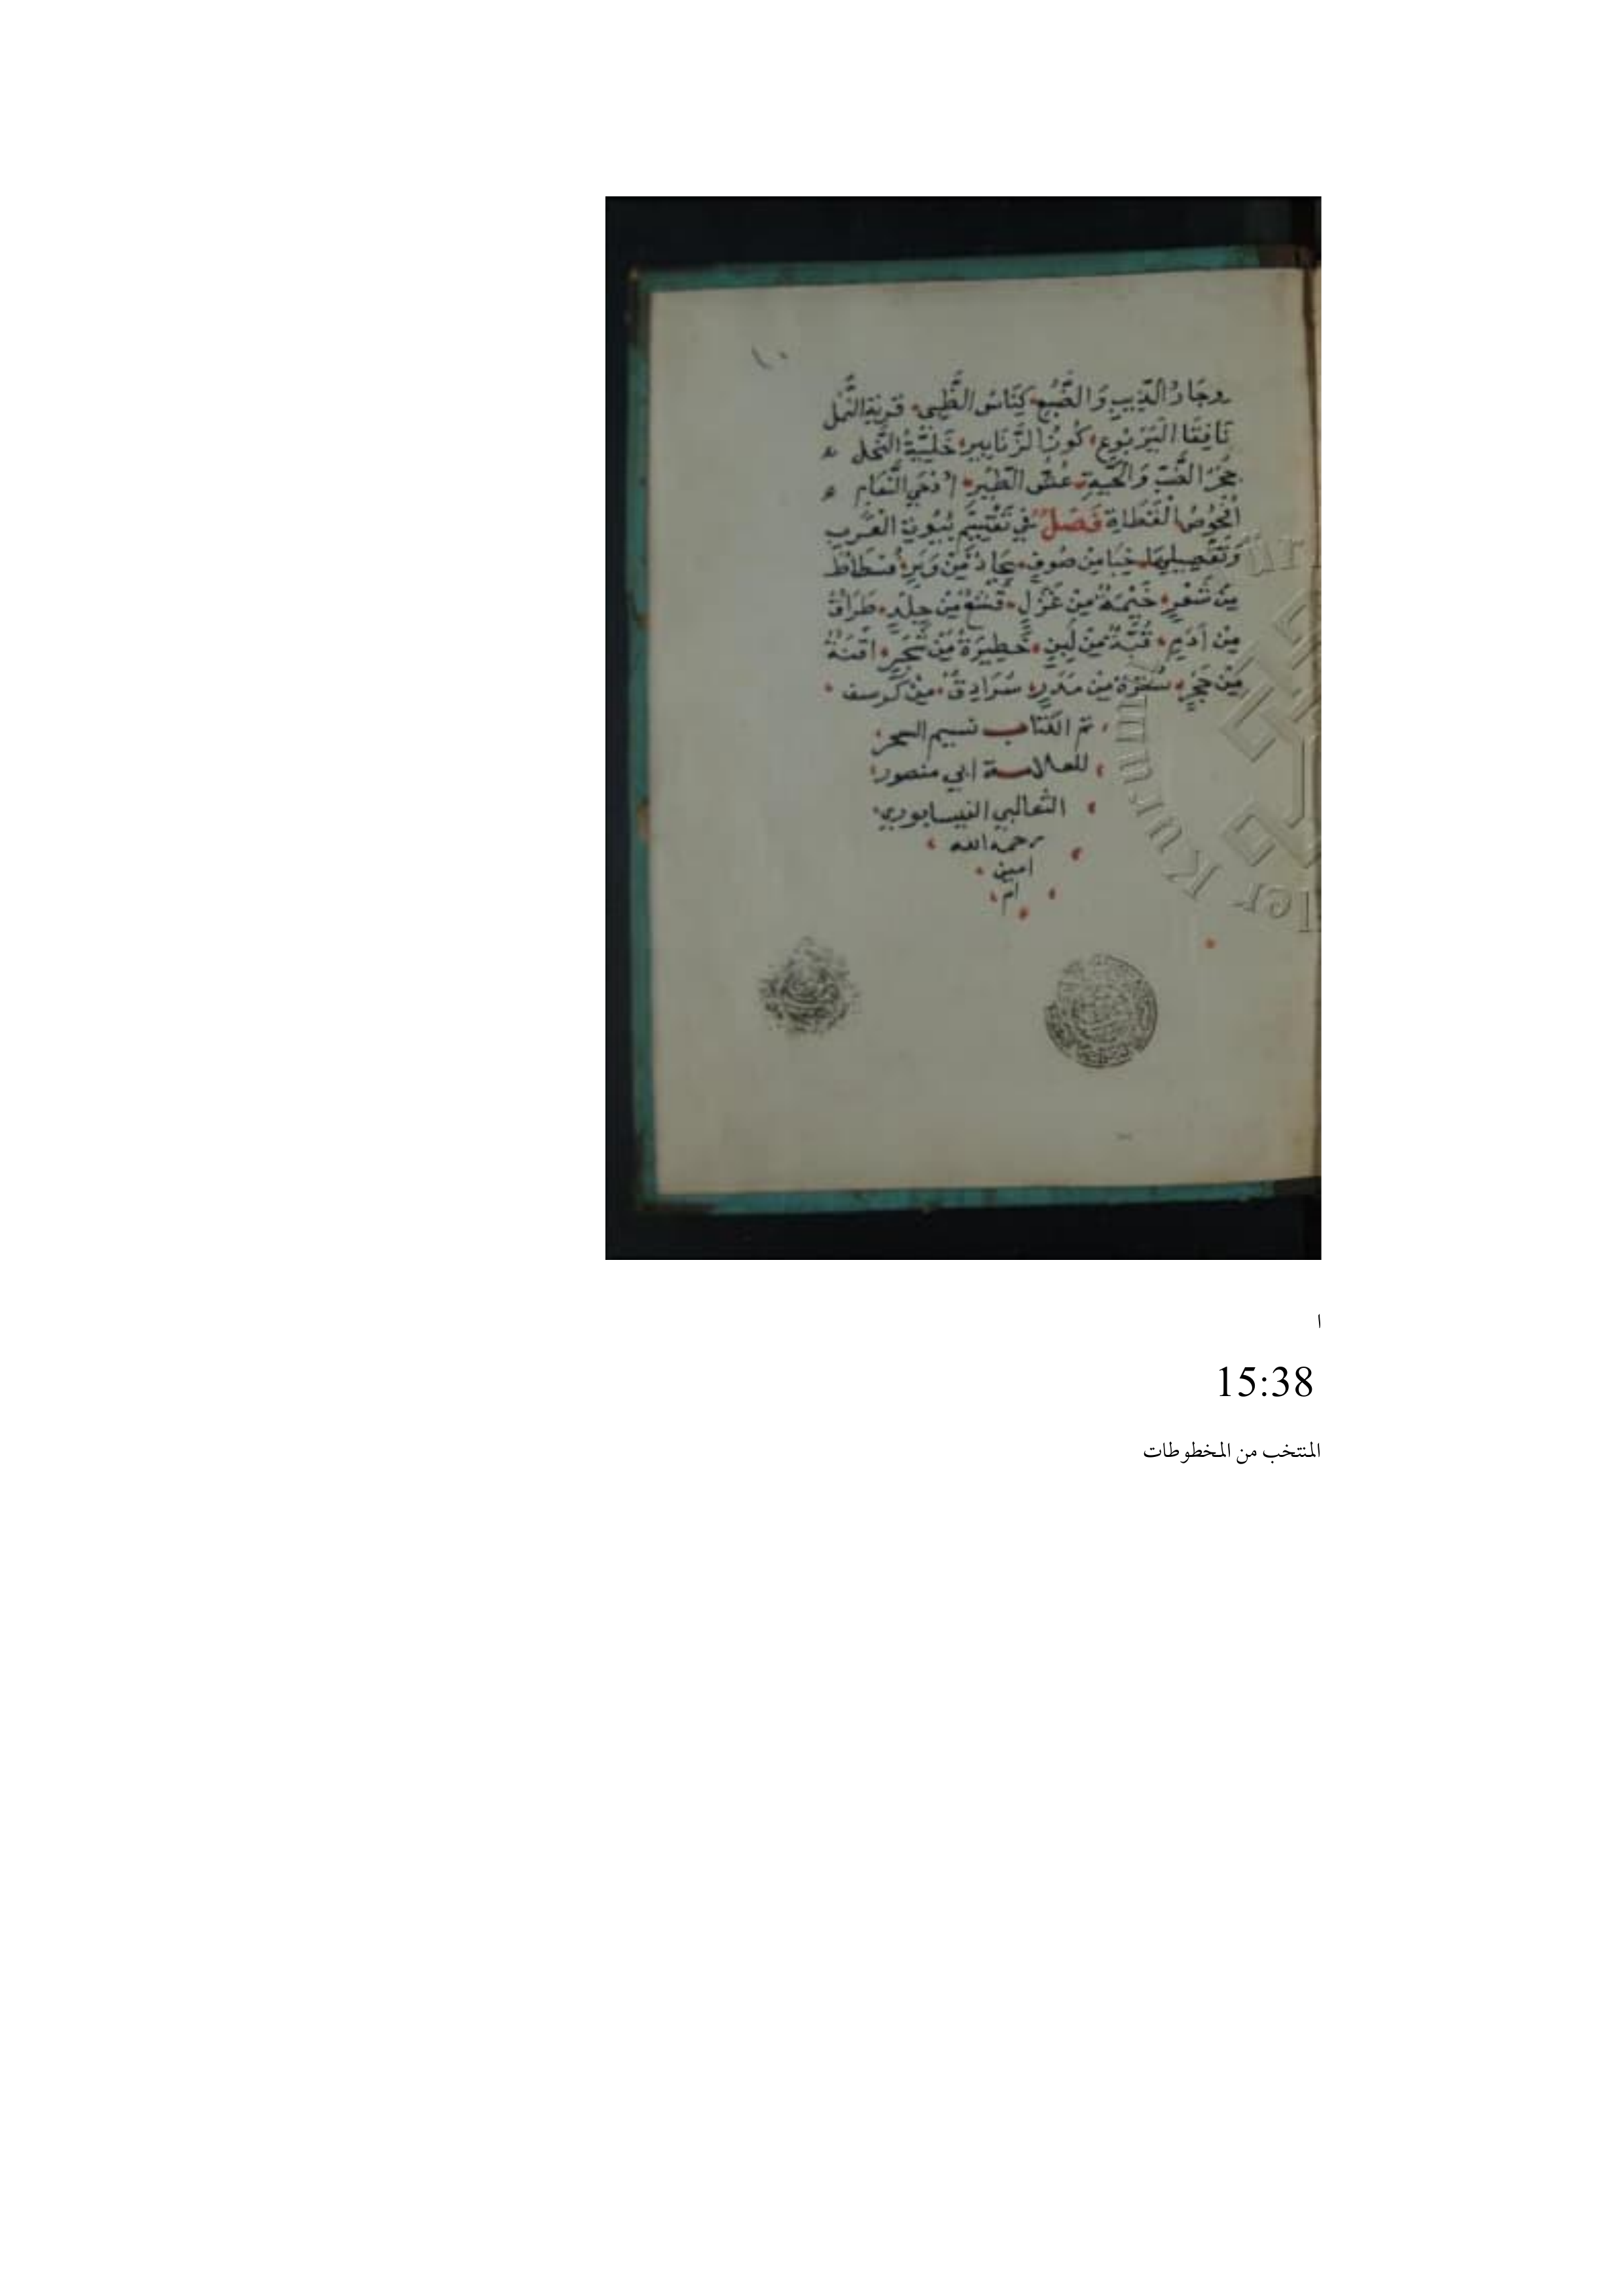 ١٠
وِجَارُ الذِّيبِ وَالضَّبُعِ كِنَاسُ الظَّبى قرية النَّمْل
نَافِقَا اليَرْبُوعِ كُورُ الزَّنَابِير خَلِيَّةُ النَّحل
جُحْرُ الضَّبِّ وَالحَيَّةِ عُشُّ الطَّيْرِ أُدْحِي النَّعَامِ
أُفْحُوصُ الْقَطَاةِ فَصْلٌ فِي تَقْسِيمِ بُيُوتِ الْعَرَبِ
وَتَفْصِيلِهَا خِبَا مِنْ صُوفٍ بِجَادٌ مِنْ وَبَرٍ فُسْطَاطٌ
مِنْ شَعْرٍ خَيْمَةٌ مِنْ غَزْلٍ قَشْعٌ مِنْ جِلْدٍ طِرَافٌ
مِنْ أَدَمٍ قُبَّةٌ مِنْ لَبِنٍ حَظِيرَةٌ مِنْ شَجَرٍ أُقْنَةٌ
مِنْ حَجَرٍ سُتْرَةٌ مِنْ مَدَرٍ سُرَادِقٌ مِنْ كُرسف
تم الكتاب نسيم السحر
للعلامة ابي منصور
الثعالبي النيسابوري
رحمه الله
امين
ام
ا
15:38
المنتخب من المخطوطات